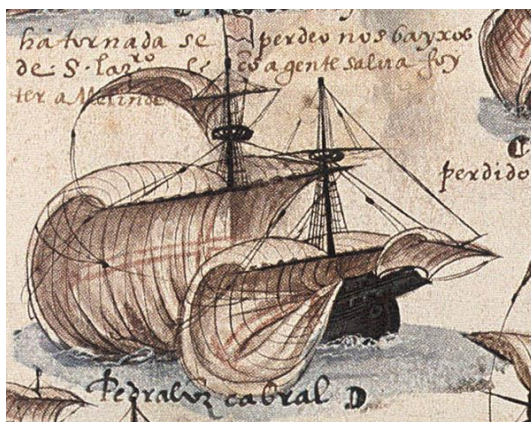 há tornada se perdeo nos bayxos
de S. Laz.ro e cõ a gente salua foy
ter a Melinde
perdido
Pedraluz cabral D